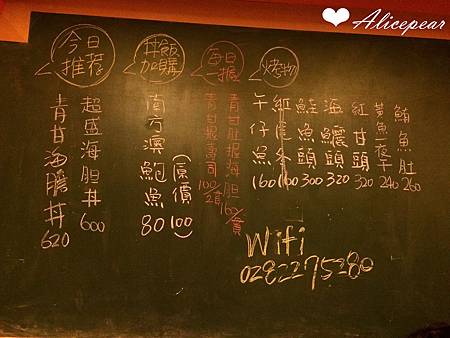 Alicepear
今日
推荐
超盛海胆丼 600
青甘海膽丼 620
丼飯
加購
南方澳鮑魚 80
(原價100)
每日
一握
青甘肚握海胆
青甘握壽司 100/2貫
烤物
午仔魚 160
鮭魚頭 300
海鱺頭 320
紅甘頭 320
黃魚一夜干 240
鮪魚肚 260
Wifi
0282275280